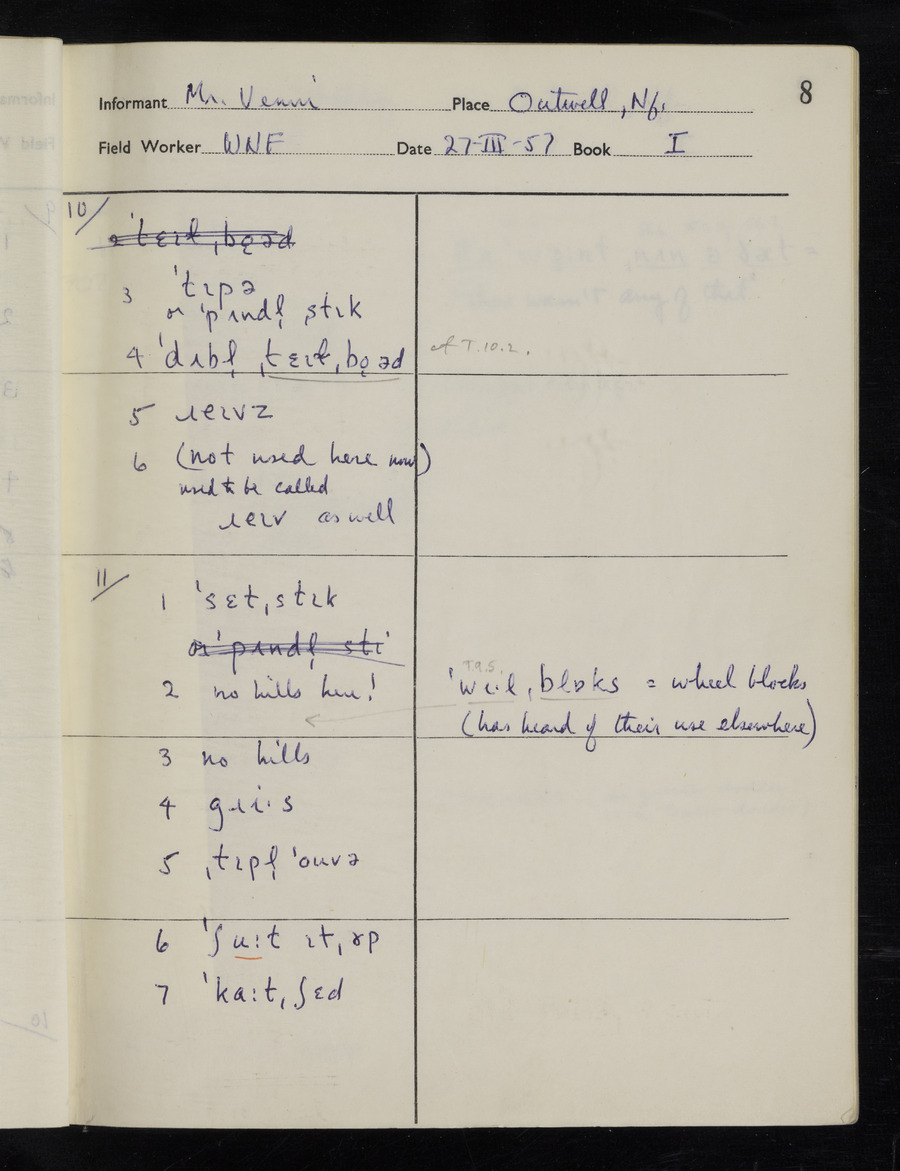 8
Informant Mr. Venni Place Outwell, Nf.
Field Worker WNF Date 27-III-57 Book I
10/
3 ˈtɪpə
or ˈpɹɪndl̩ ˌstɪk
4 ˈdʌbl̩ ˌtɛɪɫˌbo̜əd
cf T.10.2.
5 ɹeɪvz
6 (not used here now)
used to be called
ɹeɪv as well
11/
1 ˈsɛtˌstɪk
2 no hills here!
T.9.5.
ˈwiˑlˌblɒks = wheel blocks
(has heard of their use elsewhere)
3 no hills
4 gɹiˑs
5 ˌtɪpl̩ ˈouvə
6 ˈʃuːt ɪtˌɤp
7 ˈkaːtˌʃɛd